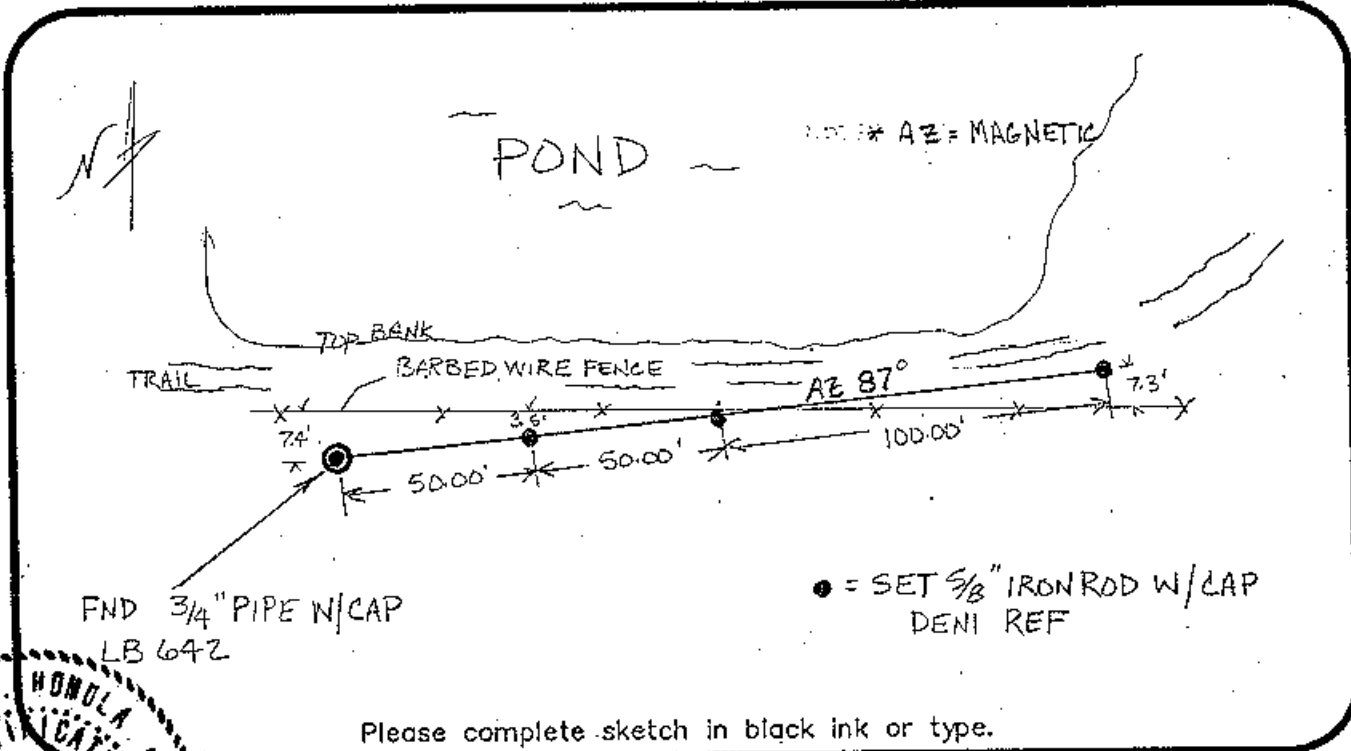 N
POND
* AZ = MAGNETIC
TOP BANK
TRAIL
BARBED WIRE FENCE
AZ 87°
7.3'
7.4'
3.5'
50.00'
50.00'
100.00'
FND 3/4" PIPE W/CAP
LB 642
= SET 5/8" IRON ROD W/CAP
DENI REF
HONOLA
Please complete sketch in black ink or type.